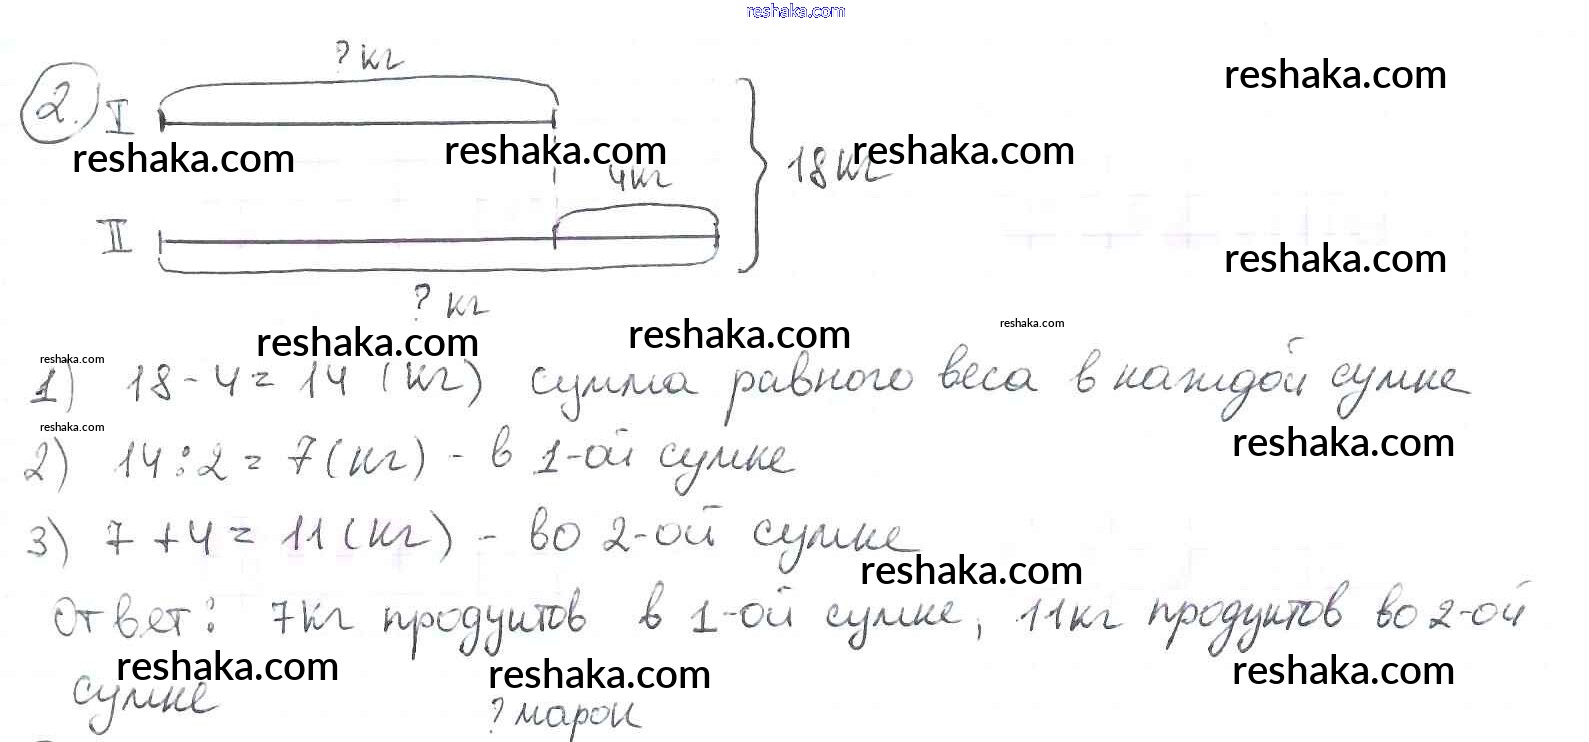 reshaka.com
? кг
reshaka.com
2. I
reshaka.com reshaka.com reshaka.com
4кг 18кг
II
reshaka.com
? кг
reshaka.com reshaka.com reshaka.com
reshaka.com
1) 18 - 4 = 14 (кг) сумма равного веса в каждой сумке
reshaka.com
reshaka.com
2) 14 : 2 = 7 (кг) - в 1-ой сумке
3) 7 + 4 = 11 (кг) - во 2-ой сумке
reshaka.com
Ответ: 7кг продуктов в 1-ой сумке, 11кг продуктов во 2-ой
reshaka.com reshaka.com reshaka.com
сумке
? марок